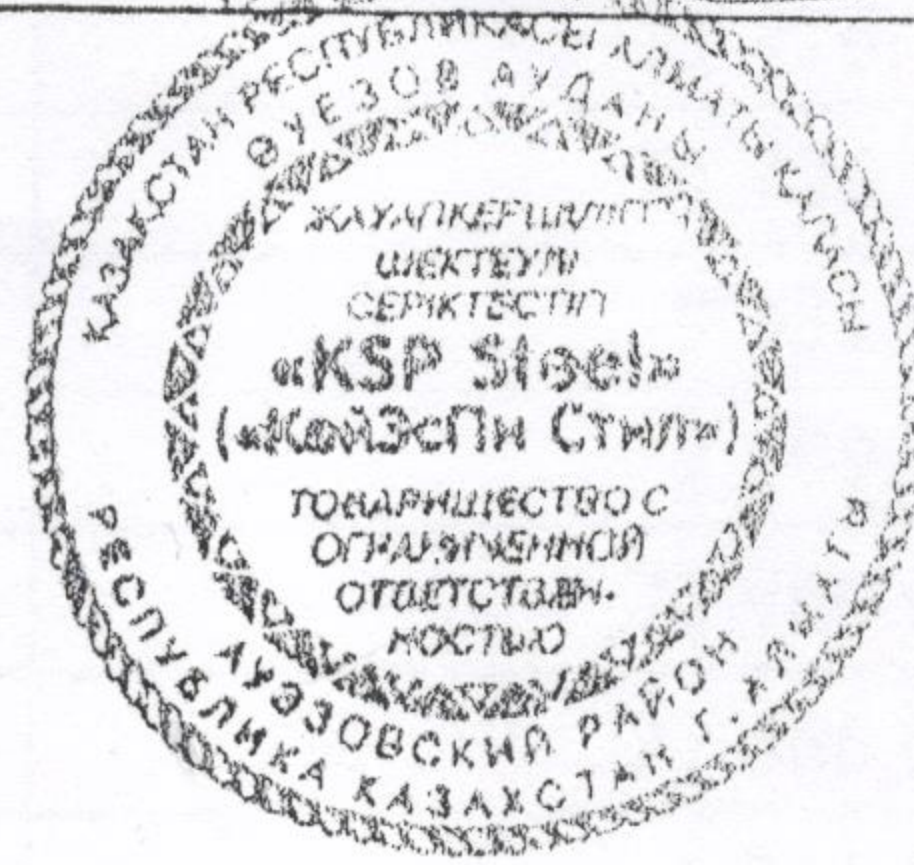 ҚАЗАҚСТАН РЕСПУБЛИКАСЫ АЛМАТЫ ҚАЛАСЫ
ӘУЕЗОВ АУДАНЫ
ЖАУАПКЕРШІЛІГІ
ШЕКТЕУЛІ
СЕРІКТЕСТІГІ
«KSP Steel»
(«КэйЭсПи Стил»)
ТОВАРИЩЕСТВО С
ОГРАНИЧЕННОЙ
ОТВЕТСТВЕН-
НОСТЬЮ
АУЭЗОВСКИЙ РАЙОН
РЕСПУБЛИКА КАЗАХСТАН Г. АЛМАТЫ